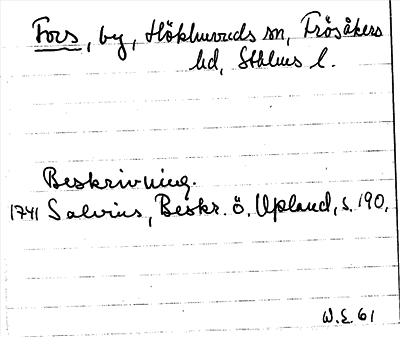 Fors, by, Hökhuvuds sn, Frösåkers
hd, Sthlms l.
Beskrivning.
1741 Salvius, Beskr. ö. Upland, s. 190.
W.E. 61